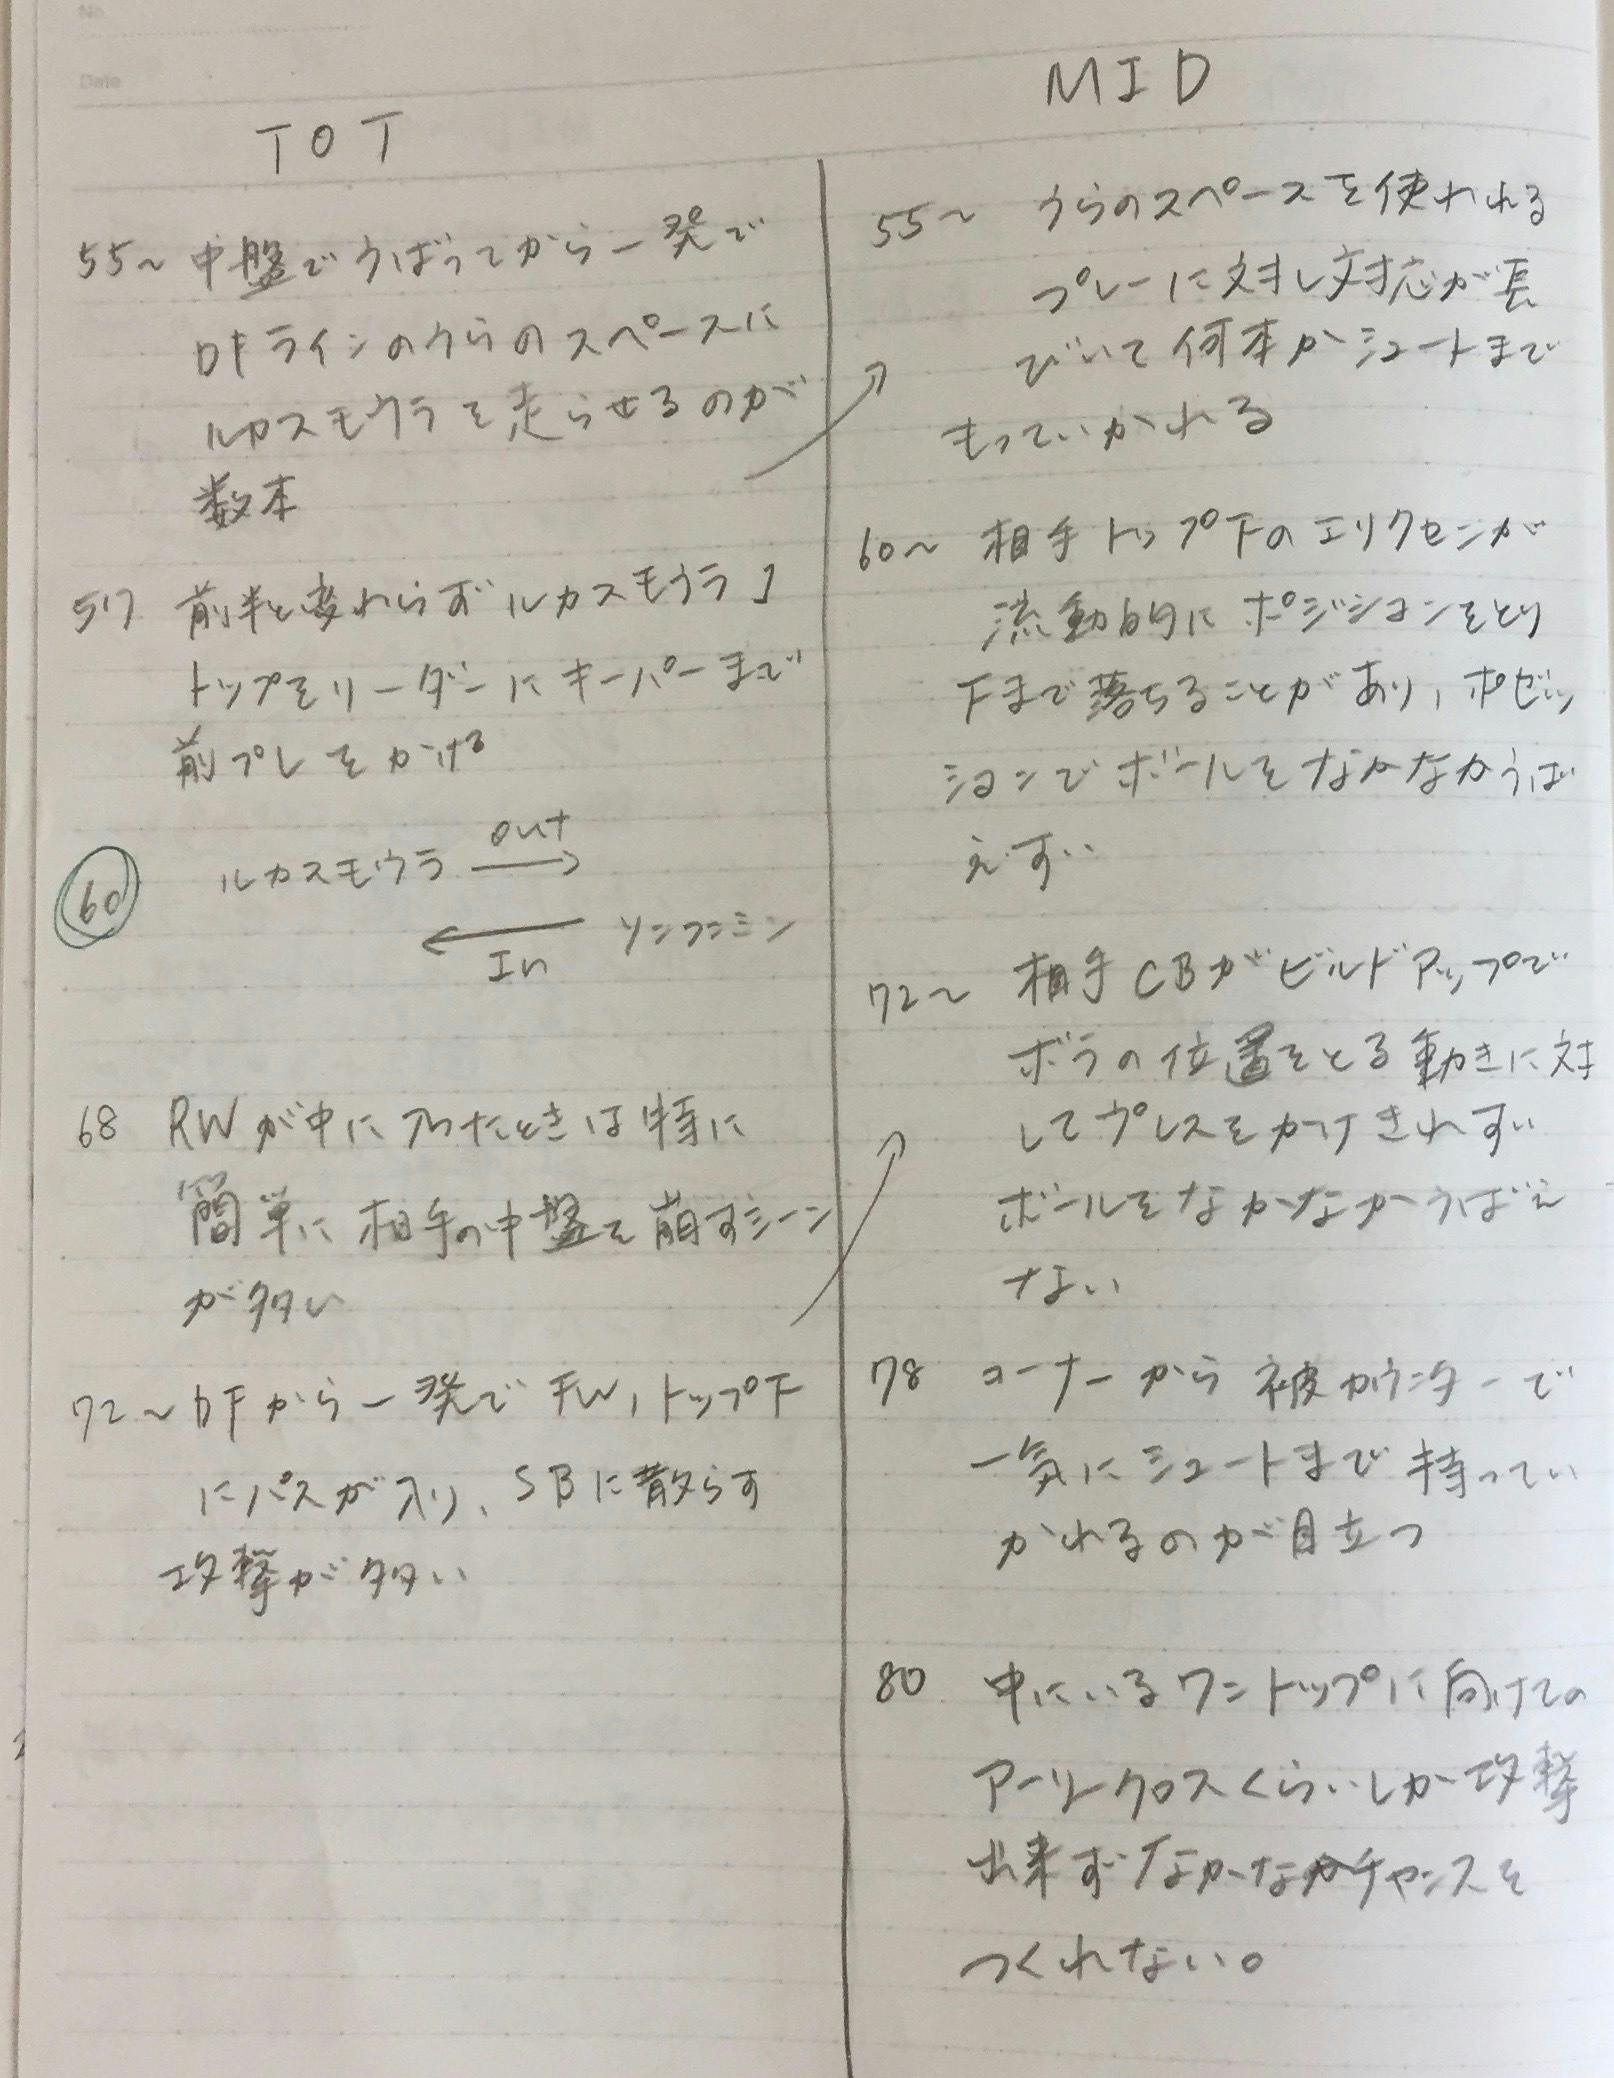 No.
Date
TOT
55~ 中盤でうばってから一発で
DFラインのうらのスペースに
ルカスモウラを走らせるのが
数本
57 前半と変わらずルカスモウラ1
トップをリーダーにキーパーまで
前プレをかける
60 ルカスモウラ out
In ソンフンミン
68 RWが中に入ったときは特に
簡単に相手の中盤を崩すシーン
が多い
72~ DFから一発でFW,トップ下
にパスが入り、SBに散らす
攻撃が多い
MID
55~ うらのスペースを使われる
プレーに対し対応が長
びいて何本かシュートまで
もっていかれる
60~ 相手トップ下のエリクセンが
流動的にポジションをとり
下まで落ちることがあり、ポゼッ
ションでボールをなかなかうば
えず、、
72~ 相手CBがビルドアップで
ボラの位置をとる動きに対
してプレスをかけきれず、、
ボールをなかなかうばえ
ない
78 コーナーから被カウンターで
一気にシュートまで持ってい
かれるのが目立つ
80 中にいるワントップに向けての
アーリークロスくらいしか攻撃
出来ずなかなかチャンスを
つくれない。